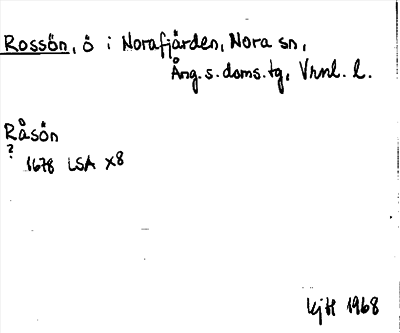 Rossön, ö i Norafjärden, Nora sn,
Ång. s. doms. tg, Vrnl. l.
Råsön
? 1678 LSA X8
KjH 1968